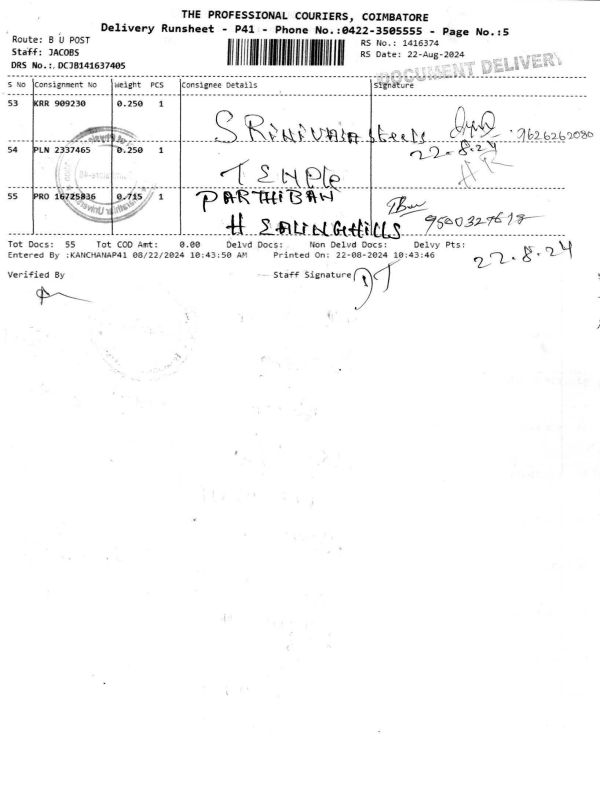 THE PROFESSIONAL COURIERS, COIMBATORE
Delivery Runsheet - P41 - Phone No.:0422-3505555 - Page No.:5
Route: B U POST
RS No.: 1416374
Staff: JACOBS
RS Date: 22-Aug-2024
DRS No.:.DCJB141637405
DOCUMENT DELIVERY
S No Consignment No Weight PCS Consignee Details Signature
53 KRR 909230 0.250 1
SRINIVASA Steels 9626262080
54 PLN 2337465 0.250 1
22.8.24
TEMPle
55 PRO 16725836 0.715 1
PARTHIBAN
HEALINGHILLS
Tot Docs: 55 Tot COD Amt: 0.00 Delvd Docs: Non Delvd Docs: Delvy Pts:
Entered By :KANCHANAP41 08/22/2024 10:43:50 AM Printed On: 22-08-2024 10:43:46
22.8.24
Verified By
Staff Signature